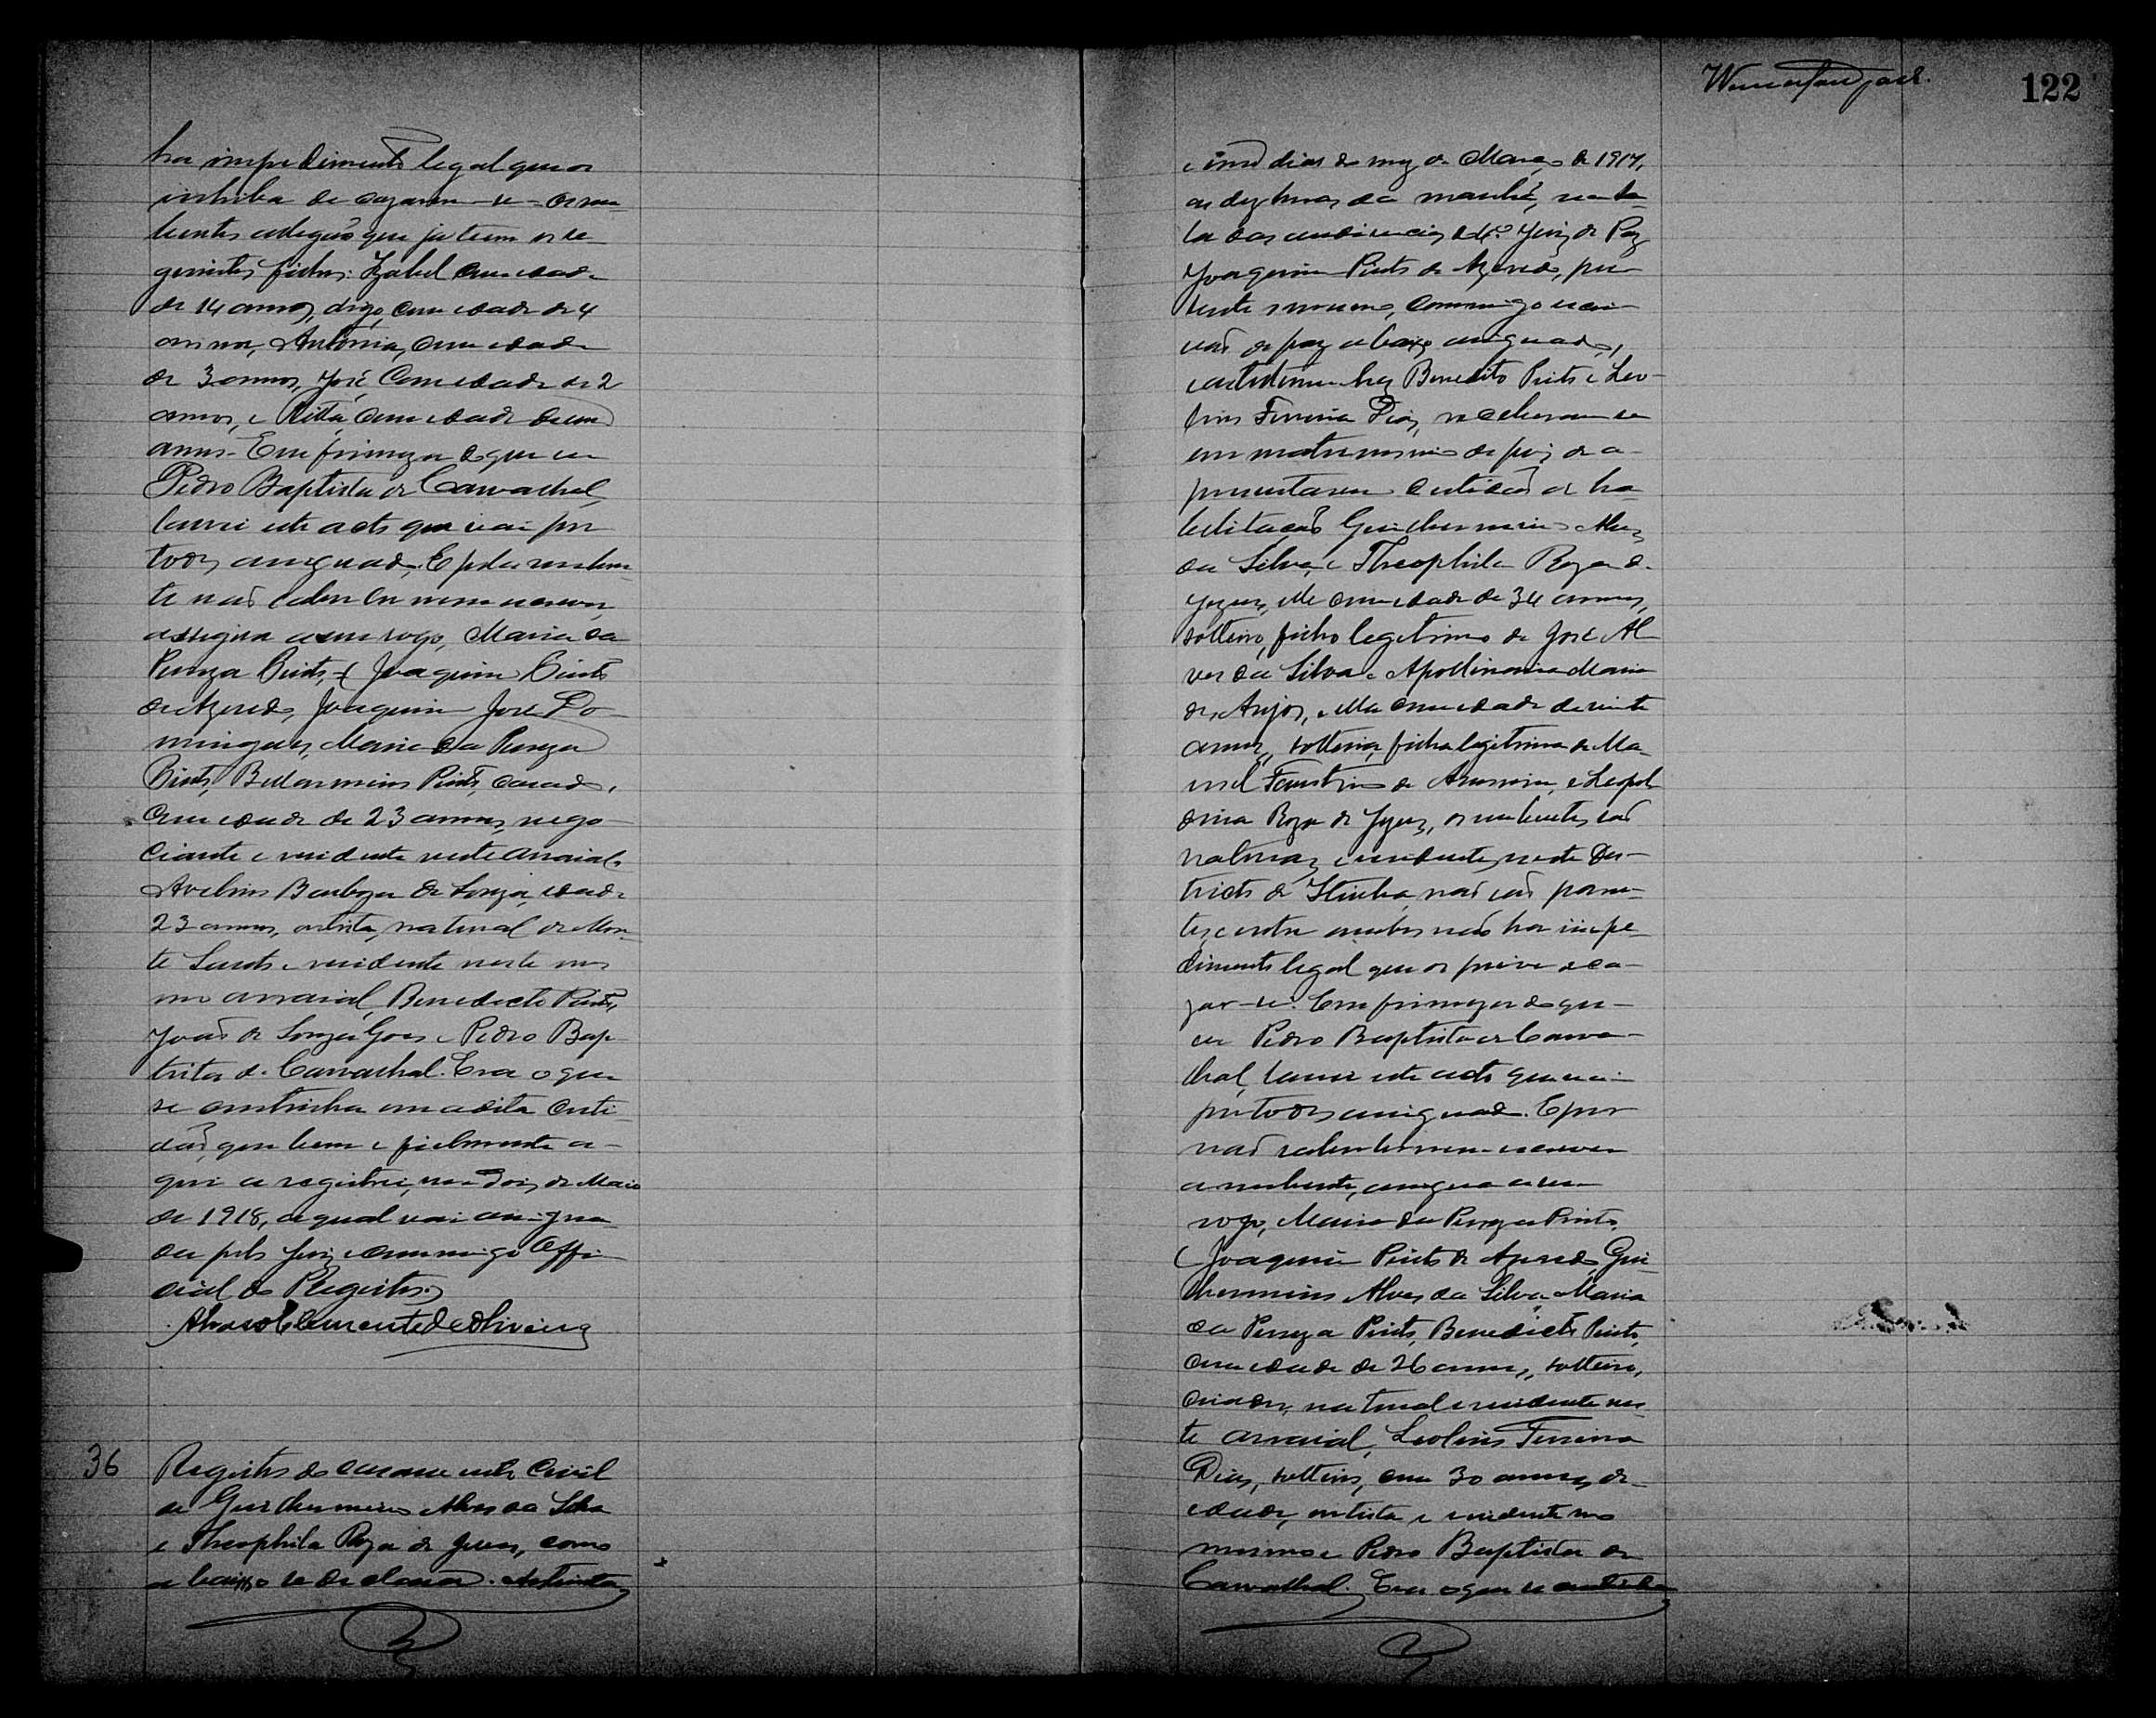 ha impedimento legal que os
inhiba de cazarem-se - os nu
bentes allegão que ja teem os se
guintes filhos: Izabel com edade
de 14 annos, digo, com edade de 4
annos, Antonia, com edade
de 3 annos, José com edade de 2
annos, e Ritta, com edade de um
anno - Em firmeza do que eu
Pedro Baptista de Carvalhal,
lavrei este acto que vai por
todos assignado. E pela nuben
te não saber ler nem escrever,
assigna a seu rogo, Maria da
Pureza Pinto, Joaquim Pinto
de Azeredo, Joaquim José Do
mingues, Maria da Pureza
Pinto, Bellarmino Pinto, casado,
com edade de 23 annos, nego
ciante e residente neste arraial,
Avelino Barboza de Souza, edade
23 annos, artista, natural de Mon
te Santo e residente neste mes
mo arraial, Benedicto Pinto,
João de Souza Goes e Pedro Bap
tista de Carvalhal. Era o que
se continha em a dita certi
dão, que bem e fielmente a
qui a registrei, em dois de Maio
de 1918, a qual vai assigna
da pelo Juiz e commigo Offi
cial do Registro.
Clemente de Oliveira
36 Registro do casamento Civil
de Guilhermino Alves da Silva
e Theophila Roza de Jesus, como
abaixo se declara. Aos trinta
122
e um dias do mez de Março de 1917,
as dez horas da manhã, na sa
la das audiencias do Juiz de Paz
Joaquim Pinto de Azeredo, pre
sente o mesmo, commigo escri
vão de paz abaixo assignado,
e as testemunhas Benedito Pinto e Leo-
lino Ferreira Dias, receberam-se
em matrimonio depois de a-
presentarem certidão de ha
bilitação Guilhermino Alves
da Silva, e Theophila Roza de
Jezus, elle com edade de 34 annos,
solteiro, filho legitimo de José Al
ves da Silva e Apollinaria Maria
dos Anjos, ella com edade de vinte
annos, solteira, filha legitima de Ma-
noel Faustino de e Leopol
dina Roza de Jezus, os nubentes são
naturaes e residentes neste Dis-
tricto de Itiuba, não são paren-
tes, e entre ambos não ha impe-
dimento legal que os prive de ca-
zar-se. Em firmeza do que
eu Pedro Baptista de Carva-
lhal, lavrei este acto que vai
por todos assignado. E por
não saber ler nem escrever
a nubente, assigna a seu
rogo, Maria da Pureza Pinto.
Joaquim Pinto de Azeredo, Gui
lhermino Alves da Silva, Maria
da Pureza Pinto, Benedicto Pinto,
com edade de 26 annos, solteiro,
creador, natural e residente nes
te arraial, Leolino Ferreira
Dias, solteiro, com 30 annos de
edade, artista e residente no
mesmo e Pedro Baptista de
Carvalhal. Era o que se continha